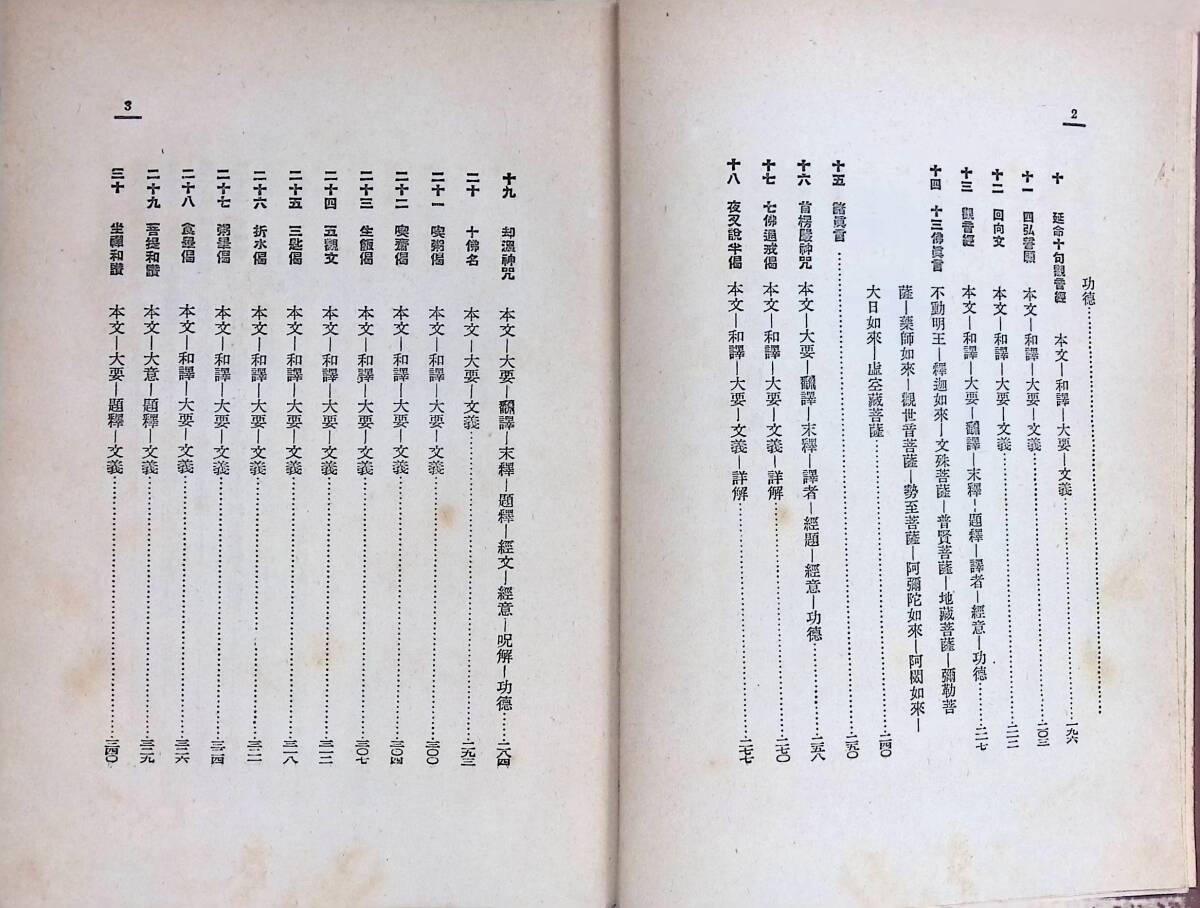 2
功德
十 延命十句觀音經 本文―和譯―大要―文義 一九六
十一 四弘誓願 本文―和譯―大要―文義 二〇三
十二 回向文 本文―和譯―大要―文義 二一二
十三 觀音經 本文―和譯―大要―飜譯―末釋―題釋―譯者―經意―功德 二一七
十四 十三佛眞言 不動明王―釋迦如來―文殊菩薩―普賢菩薩―地藏菩薩―彌勒菩
薩―藥師如來―觀世音菩薩―勢至菩薩―阿彌陀如來―阿閦如來―
大日如來―虛空藏菩薩 二四〇
十五 諸眞言 二五〇
十六 首楞嚴神咒 本文―大要―飜譯―末釋―譯者―經題―經意―功德 二五八
十七 七佛通戒偈 本文―和譯―大要―文義―詳解 二七〇
十八 夜叉說半偈 本文―和譯―大要―文義―詳解 二七七
3
十九 却溫神咒 本文―大要―飜譯―末釋―題釋―經文―經意―呪解―功德 二八四
二十 十佛名 本文―大要―文義 二九三
二十一 喫粥偈 本文―和譯―大要―文義 三〇〇
二十二 喫齋偈 本文―和譯―大要―文義 三〇四
二十三 生飯偈 本文―和譯―大要―文義 三〇七
二十四 五觀文 本文―和譯―大要―文義 三一二
二十五 三匙偈 本文―和譯―大要―文義 三一八
二十六 折水偈 本文―和譯―大要―文義 三二一
二十七 粥畢偈 本文―和譯―大要―文義 三二四
二十八 食畢偈 本文―和譯―大要―文義 三二六
二十九 菩提和讚 本文―大意―題釋―文義 三二九
三十 坐禪和讚 本文―大要―題釋―文義 三四〇